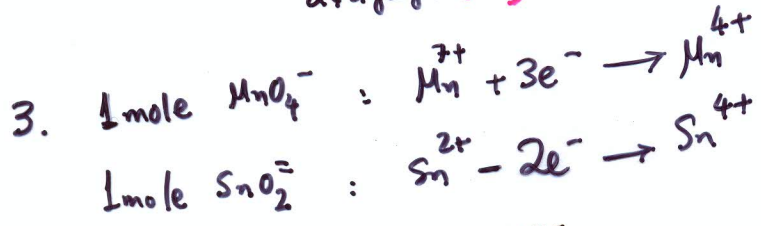 3. 1 mole MnO₄⁻ : Mn⁷⁺ + 3e⁻ → Mn⁴⁺
1 mole SnO₂⁼ : Sn²⁺ - 2e⁻ → Sn⁴⁺